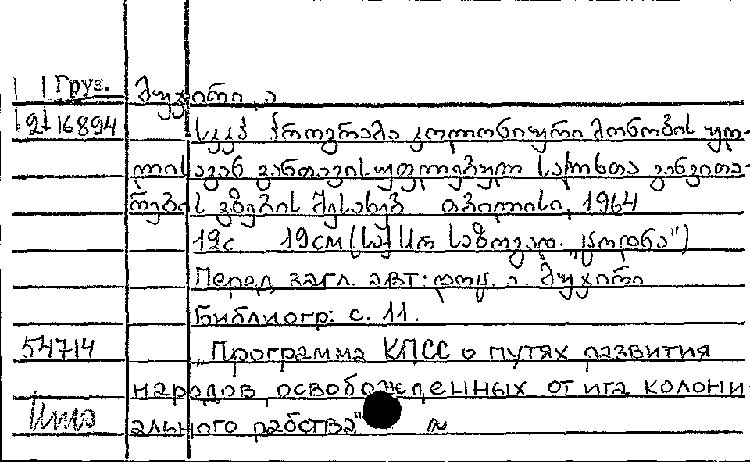 Груз. მუჯირი, ა
2 16894 სკკპ პროგრამა კოლონიური მონობის უღ-
ლისაგან განთავისუფლებულ ხალხთა განვითა-
რების გზების შესახებ თბილისი, 1964
12с 19см (საქ სსრ საზოგად. „ცოდნა")
Перед загл. авт: დოც. ა. მუჯირი
Библиогр: с. 11.
54714 „Программа КПСС о путях развития
народов освобожденных от ига колони-
ального рабства"